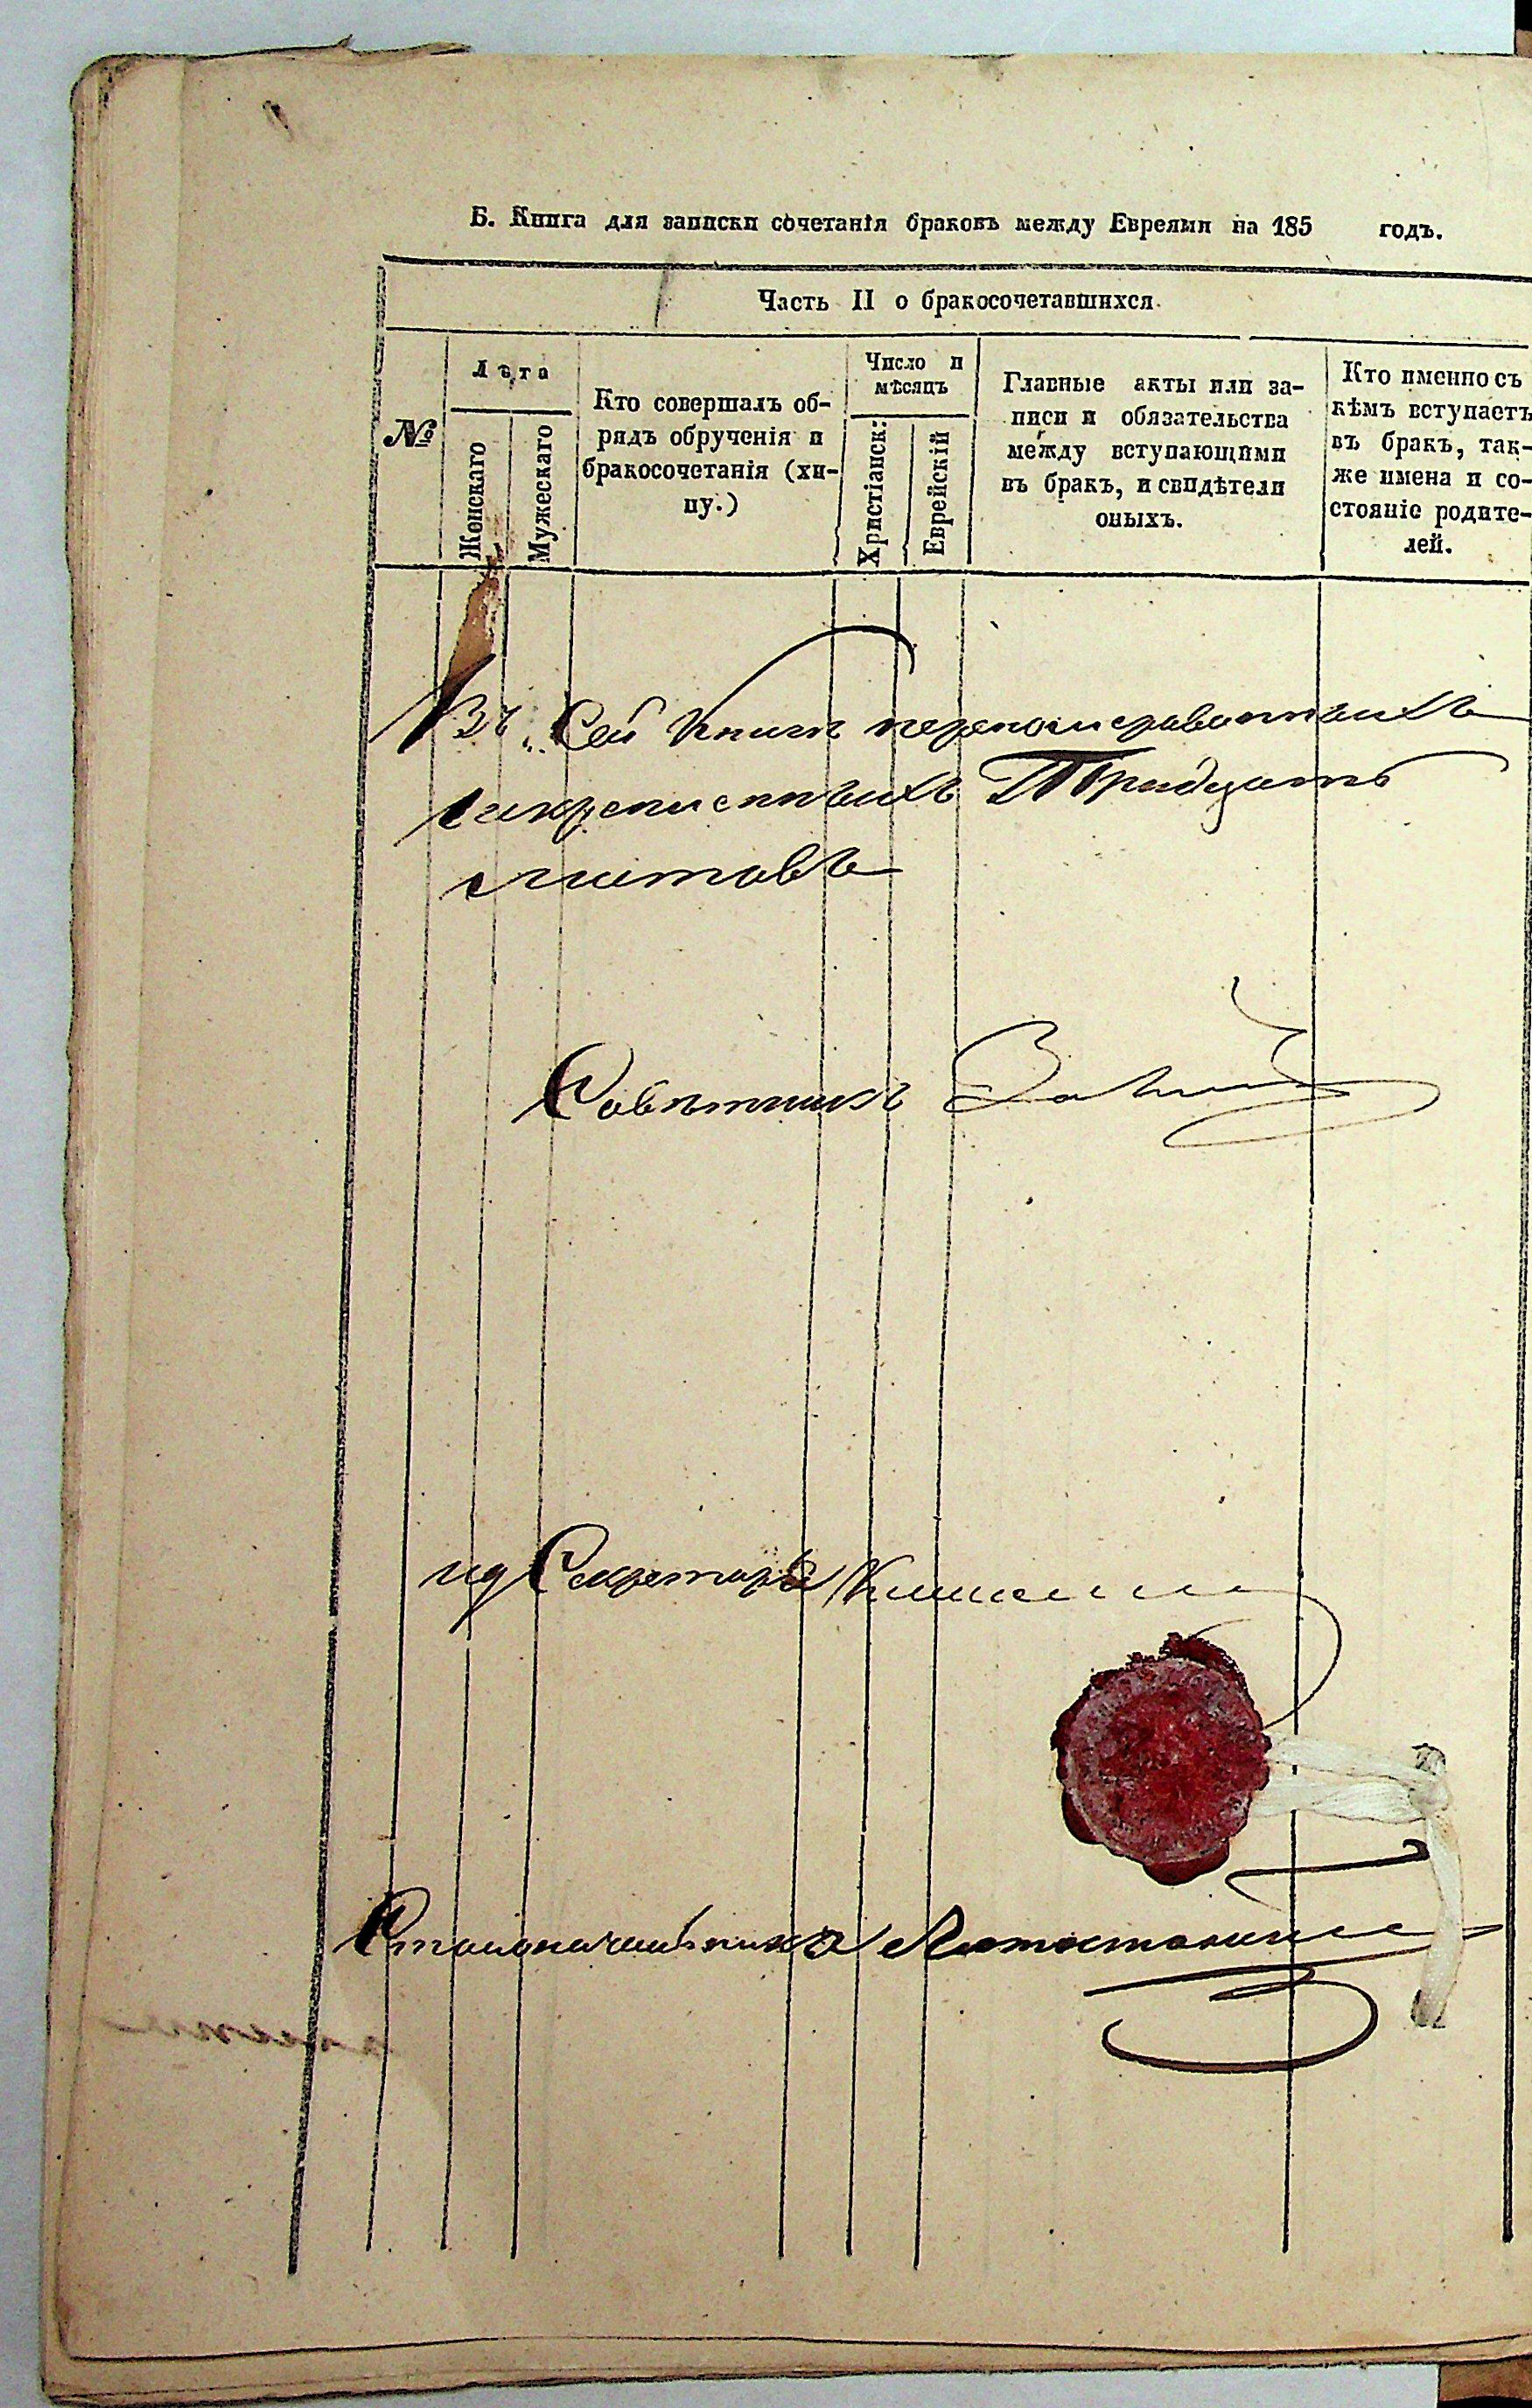 Б. Книга для записки сочетанія браковъ между Евреями на 185 годъ.
Часть II о бракосочетавшихся.
№
Лѣта
Женскаго
Мужескаго
Кто совершалъ об-
рядъ обрученія и
бракосочетанія (хи-
пу.)
Число и
мѣсяцъ
Христіанск:
Еврейскій
Главные акты или за-
писи и обязательства
между вступающими
въ бракъ, и свидѣтели
оныхъ.
Кто именно съ
кѣмъ вступаетъ
въ бракъ, так-
же имена и со-
стояніе родите-
лей.
Въ Сей книгѣ перенумерованныхъ
и скрепленныхъ Тридцать
листовъ
Совѣтникъ
ид Секретаря
Столоначальника